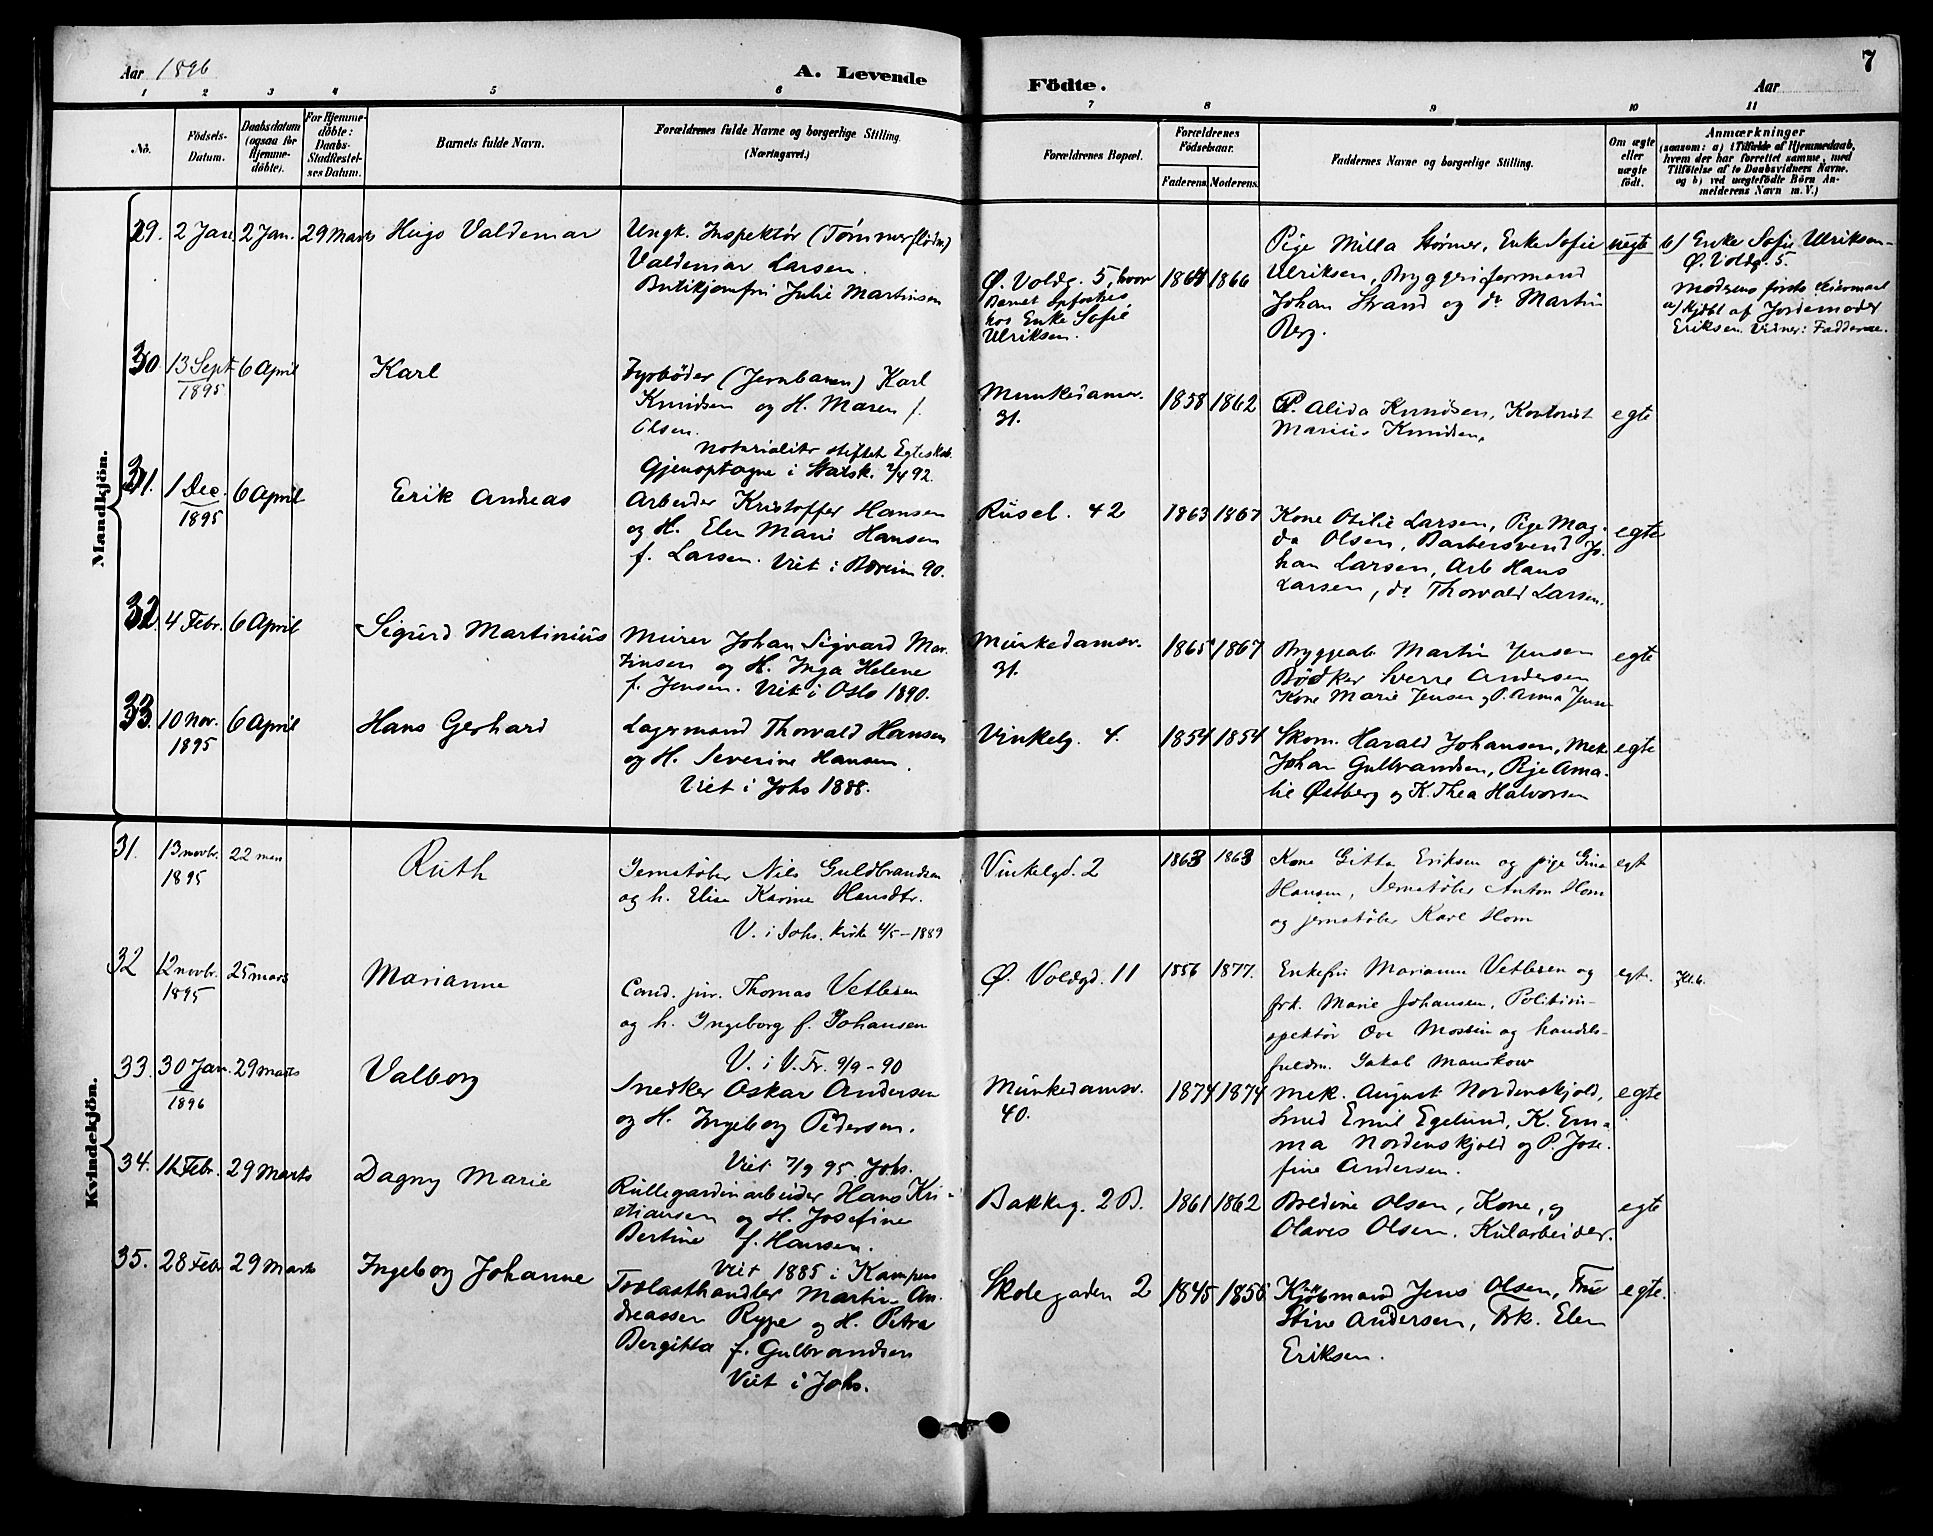 Aar 1896
A. Levende Födte.
Aar
7
1 2 3 4 5 6 7 8 9 10 11
No.
Födsels-Datum.
Daabsdatum (ogsaa for Hjemme-döbte).
For Hjemme-döbte: Daabs-Stadfæstel-ses Datum.
Barnets fulde Navn.
Forældrenes fulde Navne og borgerlige Stilling.
(Næringsvei.)
Forældrenes Bopæl.
Forældrenes Födselsaar.
Faderens. Moderens.
Faddernes Navne og borgerlige Stilling.
Om ægte eller uægte födt.
Anmærkninger
(saasom: a) i Tilfælde af Hjemmedaab,
hvem der har forrettet samme, med
Tilföielse af to Daabsvidners Navne.
og b) ved uægtefödte Börn An-
melderens Navn m. V.)
Mandkjön.
29. 2 Jan. 2 Jan. 29 Marts Hugo Valdemar
Ungk. Inspektør (Tømmerflødn.)
Valdemar Larsen.
Butikjomfru Julie Martinsen
Ø. Voldg. 5, hvor
Barnet opfostres
hos Enke Sofie
Ulriksen.
1864 1866
Pige Milla Størmer, Enke Sofie
Ulriksen, Bryggeriformand
Johan Strand og do Martin
Berg.
uegte
b) Enke Sofie Ulriksen
Ø. Voldg. 5.
Moderens første Leiermaal
a) Hjdbt af Jordemoder
Eriksen. Vidner: Fadderne.
30 13 Sept 1895 6 April Karl
Fyrbøder (Jernbanen) Karl
Knudsen og H. Maren f.
Olsen.
Notarialiter stiftet Egteskab.
Gjenoptagne i Statsk. 2/4 92.
Munkedamsv.
31.
1858 1862
P. Alida Knudsen, Kontorist
Marius Knudsen.
egte
31. 1 Dec. 1895 6 April Erik Andreas
Arbeider Kristoffer Hansen
og H. Elen Marie Hansen
f. Larsen. Viet i Bærum 90.
Rusel. 42
1863 1867
Kone Otilie Larsen, Pige Mag-
da Olsen, Barbersvend Jo-
han Larsen, Arb Hans
Larsen, do Thorvald Larsen.
egte
32. 4 Febr. 6 April Sigurd Martinius
Murer Johan Sigvard Mar-
tinsen og H. Inga Helene
f. Jensen. Viet i Oslo 1890.
Munkedamsv.
31.
1865 1867
Byggearb. Martin Jensen
Bødker Sverre Andersen
Kone Marie Jensen og P. Anna Jensen
egte
33. 10 Nov. 1895 6 April Hans Gerhard
Lagermand Thorvald Hansen
og H. Severine Hansen.
Viet i Johs 1888.
Vinkelg. 4.
1854 1854
Skom. Harald Johansen, Mek
Johan Gulbrandsen, Pige Ama-
lie Østberg og K. Thea Halvorsen
egte
Kvindekjön.
31. 13 novbr. 1895 22 mars Ruth
Jernstøber Nils Guldbrandsen
og h. Elise Karine Hansdtr.
V. i Johs. Kirke 4/5 - 1889
Vinkelgd. 2
1863 1863
Kone Gitta Eriksen og pige Gina
Hansen, Jernstøber Anton Hom
og jernstøber Karl Hom
egt
32 12 novbr. 1895 25 mars Marianne
Cand. jur. Thomas Vetlesen
og h. Ingeborg f. Johansen
V. i V. Fr. 9/9 - 90
Ø. Voldgd. 11
1856 1877.
Enkefru Marianne Vetlesen og
frk. Marie Johansen, Politiin-
spektör Ove Mossin og handels-
fuldm. Jakob Manskow
egt.
Kl. 6.
33. 30 Jan. 1896 29 marts Valborg
Snedker Oskar Andersen
og H. Ingeborg Pedersen.
Viet 7/9 95 Johs.
Munkedamsv.
40.
1874 1874
Mek. August Nordenskjold,
Smed Emil Egelund, K. Em-
ma Nordenskjold og P. Jose-
fine Andersen.
egte
34. 12 Febr. 29 Marts Dagny Marie
Rullegardinarbeider Hans Kri-
stiansen og H. Josefine
Bertine f. Hansen.
Viet 1885 i Kampen
Bakkeg. 2 B.
1861 1862
Boldine Olsen, Kone, og
Olaves Olsen, Kularbeider.
egte
35. 28 Febr 29 Marts Ingeborg Johanne
Trælasthandler Martin An-
dreassen Rype og H. Petra
Bergitta f. Gulbrandsen
Viet i Johs.
Skolegaden 2
1845 1855
Kjøbmand Jens Olsen, Fru
Stine Andersen, Frk. Elen
Eriksen.
egte.